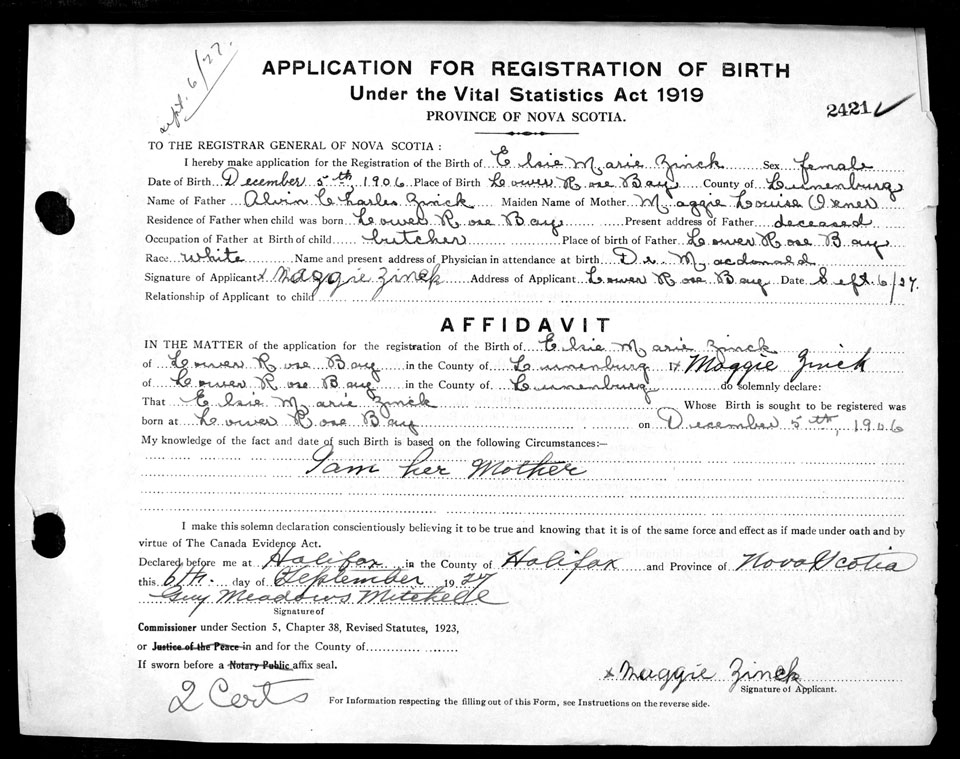 Sept. 6/27.
APPLICATION FOR REGISTRATION OF BIRTH
Under the Vital Statistics Act 1919
2421
PROVINCE OF NOVA SCOTIA.
TO THE REGISTRAR GENERAL OF NOVA SCOTIA:
I hereby make application for the Registration of the Birth of Elsie Marie Zinck Sex female
Date of Birth December 5th, 1906 Place of Birth Lower Rose Bay County of Lunenburg
Name of Father Alvin Charles Zinck Maiden Name of Mother Maggie Louise Oxner
Residence of Father when child was born Lower Rose Bay Present address of Father deceased
Occupation of Father at Birth of child butcher Place of birth of Father Lower Rose Bay
Race White Name and present address of Physician in attendance at birth Dr. Macdonald
Signature of Applicant x Maggie Zinck Address of Applicant Lower Rose Bay Date Sept. 6/27.
Relationship of Applicant to child
AFFIDAVIT
IN THE MATTER of the application for the registration of the Birth of Elsie Marie Zinck
of Lower Rose Bay in the County of Lunenburg I x Maggie Zinck
of Lower Rose Bay in the County of Lunenburg do solemnly declare:
That Elsie Marie Zinck Whose Birth is sought to be registered was
born at Lower Rose Bay on December 5th, 1906
My knowledge of the fact and date of such Birth is based on the following Circumstances:—
I am her Mother
I make this solemn declaration conscientiously believing it to be true and knowing that it is of the same force and effect as if made under oath and by
virtue of The Canada Evidence Act.
Declared before me at Halifax in the County of Halifax and Province of Nova Scotia
this 6th. day of September 1927
Guy Meadows Mitchell
Signature of
Commissioner under Section 5, Chapter 38, Revised Statutes, 1923,
or Justice of the Peace in and for the County of
If sworn before a Notary Public affix seal.
x Maggie Zinck
Signature of Applicant.
2 Certs
For Information respecting the filling out of this Form, see Instructions on the reverse side.